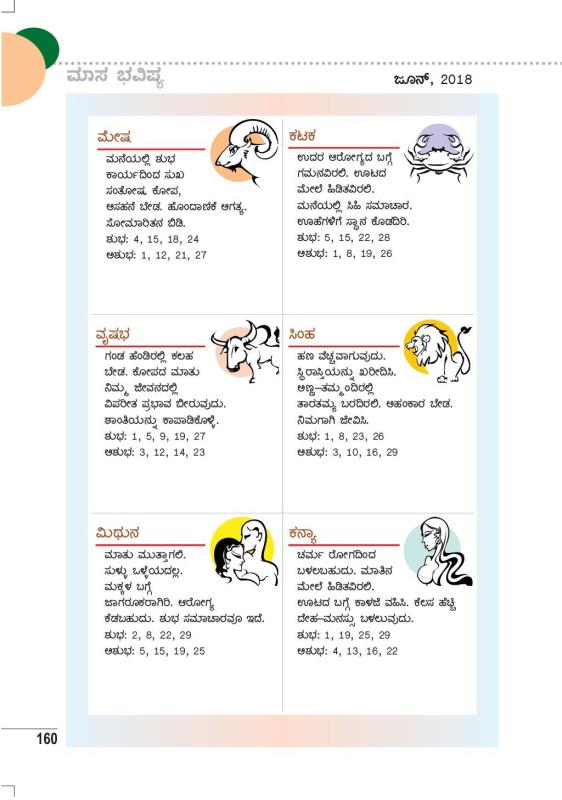 ಮಾಸ ಭವಿಷ್ಯ
ಜೂನ್, 2018
ಮೇಷ
ಮನೆಯಲ್ಲಿ ಶುಭ
ಕಾರ್ಯದಿಂದ ಸುಖ
ಸಂತೋಷ. ಕೋಪ,
ಅಸಹನೆ ಬೇಡ. ಹೊಂದಾಣಿಕೆ ಅಗತ್ಯ.
ಸೋಮಾರಿತನ ಬಿಡಿ.
ಶುಭ: 4, 15, 18, 24
ಅಶುಭ: 1, 12, 21, 27
ಕಟಕ
ಉದರ ಆರೋಗ್ಯದ ಬಗ್ಗೆ
ಗಮನವಿರಲಿ. ಊಟದ
ಮೇಲೆ ಹಿಡಿತವಿರಲಿ.
ಮನೆಯಲ್ಲಿ ಸಿಹಿ ಸಮಾಚಾರ.
ಊಹೆಗಳಿಗೆ ಸ್ಥಾನ ಕೊಡದಿರಿ.
ಶುಭ: 5, 15, 22, 28
ಅಶುಭ: 1, 8, 19, 26
ವೃಷಭ
ಗಂಡ ಹೆಂಡಿರಲ್ಲಿ ಕಲಹ
ಬೇಡ. ಕೋಪದ ಮಾತು
ನಿಮ್ಮ ಜೀವನದಲ್ಲಿ
ವಿಪರೀತ ಪ್ರಭಾವ ಬೀರುವುದು.
ಶಾಂತಿಯನ್ನು ಕಾಪಾಡಿಕೊಳ್ಳಿ.
ಶುಭ: 1, 5, 9, 19, 27
ಅಶುಭ: 3, 12, 14, 23
ಸಿಂಹ
ಹಣ ವೆಚ್ಚವಾಗುವುದು.
ಸ್ಥಿರಾಸ್ತಿಯನ್ನು ಖರೀದಿಸಿ.
ಅಣ್ಣ–ತಮ್ಮಂದಿರಲ್ಲಿ
ತಾರತಮ್ಯ ಬರದಿರಲಿ. ಅಹಂಕಾರ ಬೇಡ.
ನಿಮಗಾಗಿ ಜೀವಿಸಿ.
ಶುಭ: 1, 8, 23, 26
ಅಶುಭ: 3, 10, 16, 29
ಮಿಥುನ
ಮಾತು ಮುತ್ತಾಗಲಿ.
ಸುಳ್ಳು ಒಳ್ಳೆಯದಲ್ಲ.
ಮಕ್ಕಳ ಬಗ್ಗೆ
ಜಾಗರೂಕರಾಗಿರಿ. ಆರೋಗ್ಯ
ಕೆಡಬಹುದು. ಶುಭ ಸಮಾಚಾರವೂ ಇದೆ.
ಶುಭ: 2, 8, 22, 29
ಅಶುಭ: 5, 15, 19, 25
ಕನ್ಯಾ
ಚರ್ಮ ರೋಗದಿಂದ
ಬಳಲಬಹುದು. ಮಾತಿನ
ಮೇಲೆ ಹಿಡಿತವಿರಲಿ.
ಊಟದ ಬಗ್ಗೆ ಕಾಳಜಿ ವಹಿಸಿ. ಕೆಲಸ ಹೆಚ್ಚಿ
ದೇಹ–ಮನಸ್ಸು ಬಳಲುವುದು.
ಶುಭ: 1, 19, 25, 29
ಅಶುಭ: 4, 13, 16, 22
160